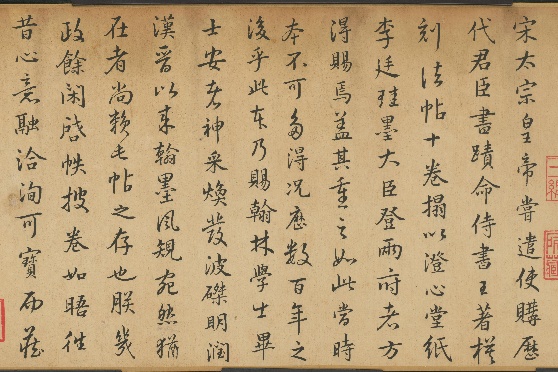 宋太宗皇帝嘗遣使購歷
代君臣書蹟命侍書王著模
刻法帖十卷搨以澄心堂紙
李廷珪墨大臣登兩府者方
得賜焉蓋其重之如此當時
本不可多得況歷數百年之
後乎此本乃賜翰林學士畢
士安者神采煥發波磔明潤
漢晉以來翰墨風規宛然猶
在者尚賴此帖之存也朕幾
政餘閑啓帙披卷如晤往
昔心意融洽洵可寶而藏